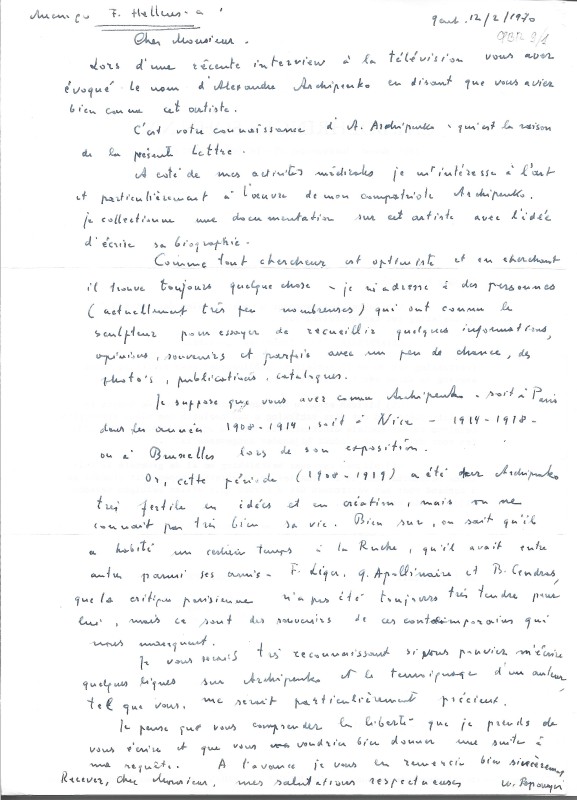 F. Hellens
Gand. 12/2/1970
Cher Monsieur.
Lors d'une récente interview à la télévision vous avez
évoqué le nom d'Alexandre Archipenko en disant que vous aviez
bien connu cet artiste.
C'est votre connaissance d'A. Archipenko - qui est la raison
de la présente lettre.
A coté de mes activités médicales je m'intéresse à l'art
et particulièrement à l'œuvre de mon compatriote Archipenko.
je collectionne une documentation sur cet artiste avec l'idée
d'écrire sa biographie.
Comme tout chercheur est optimiste et en cherchant
il trouve toujours quelque chose - je m'adresse à des personnes
(actuellement très peu nombreuses) qui ont connu le
sculpteur pour essayer de recueillir quelques informations,
opinions, souvenirs et parfois avec un peu de chance, des
photo's, publications, catalogues.
Je suppose que vous avez connu Archipenko - soit à Paris
dans les années 1908-1914, soit à Nice - 1914-1918 -
ou à Bruxelles lors de son exposition.
Or, cette période (1908-1919) a été chez Archipenko
très fertile en idées et en création, mais on ne
connait pas très bien sa vie. Bien sur, on sait qu'il
a habité un certain temps à la Ruche, qu'il avait entre
autres parmi ses amis - F. Léger, G. Apollinaire et B. Cendras,
que la critique parisienne n'a pas été toujours très tendre pour
lui, mais ce sont des souvenirs de ces contemporains qui
nous manquent.
Je vous serais très reconnaissant si vous pouviez m'écrire
quelques lignes sur Archipenko et le temoignage d'un auteur,
tel que vous, me serait particulièrement précieux.
Je pense que vous comprendrez la liberté que je prends de
vous écrire et que vous voudriez bien donner une suite à
ma requête. A l'avance je vous en remercie bien sincèrement
Recevez, cher Monsieur, mes salutations respectueuses